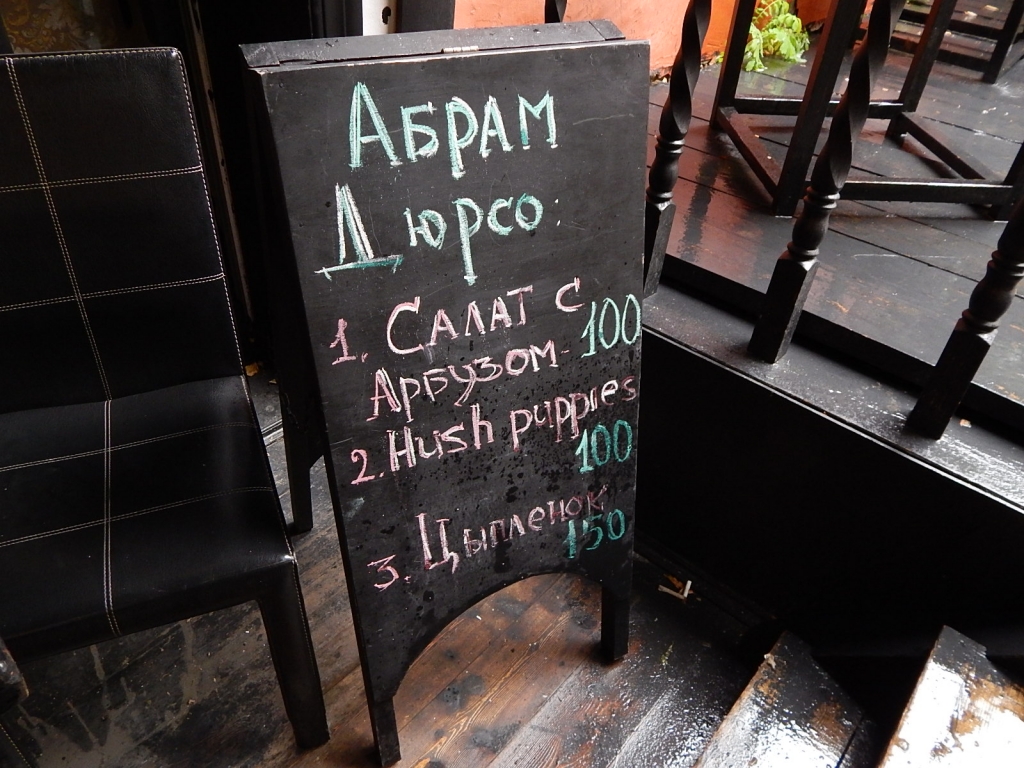 АБРАМ
Дюрсо:
1. Салат с
Арбузом - 100
2. Hush puppies
100
3. Цыпленок
150